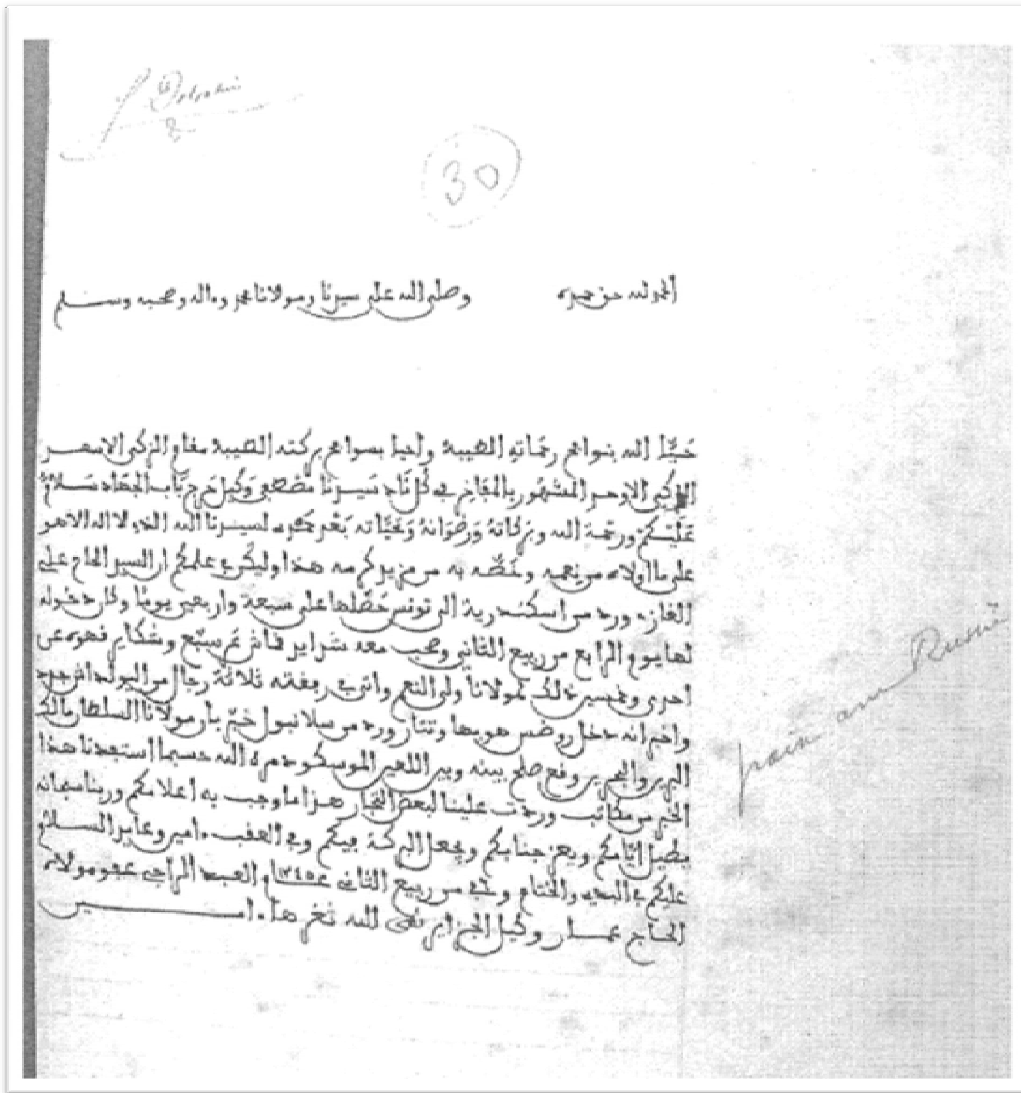 30
الحمد لله حق حمده وصلى الله على سيدنا ومولانا محمد وءاله وصحبه وسلم
حيّا الله بنوامي رحماته الطيبة وأحيا بسوامي بركته الطيبة مقام الزكي الاسعد
الزكي الاوحد المشهور بالمفاخر في كل ناد سيدنا مصطفى وكيل حرج باب الجهاد سلام
عليكم ورحمة الله وبركاته ورضوانه وتحياته بعد حمد لسيدنا الله الذي لا اله الا هو
على ما اولاه من نعمه وخصّه به من مزيد كرمه هذا وليكن في علمكم ان السيد الحاج علي
الغاز ورد من اسكندرية الى تونس حصّلها على سبعة واربعين يوما وكان دخوله
لها يوم الرابع من ربيع الثاني وصحب معه شراير قماش ثم سبع وشكاير قهوه عن
احدى وخمسين ذلك لمولانا ولي النعم واتى في رفقته ثلاثة رجال من اليولداش
واخبر انه دخل رودس هو بها وتتار ورد من سلانبول خبّر بان مولانا السلطان مالك
البرين والبحرين وقع صلح بينه وبين اللعين الموسكو دمره الله حسبما استجدنا هذا
الخبر من مكاتب وردت علينا لبعض التجار هذا ما وجب به اعلامكم وربنا سبحانه
يطيل ايامكم ويعز جنابكم ويجعل البركة فيكم وفي العقب ءامين وعاير السلام
عليكم في البدء والختام وفي من ربيع الثاني عام ١٢٤٥ العبد الراجي عفو مولاه
الحاج عمار وكيل الجزاير نفى الله ثغرها ءامين
paix avec Russie